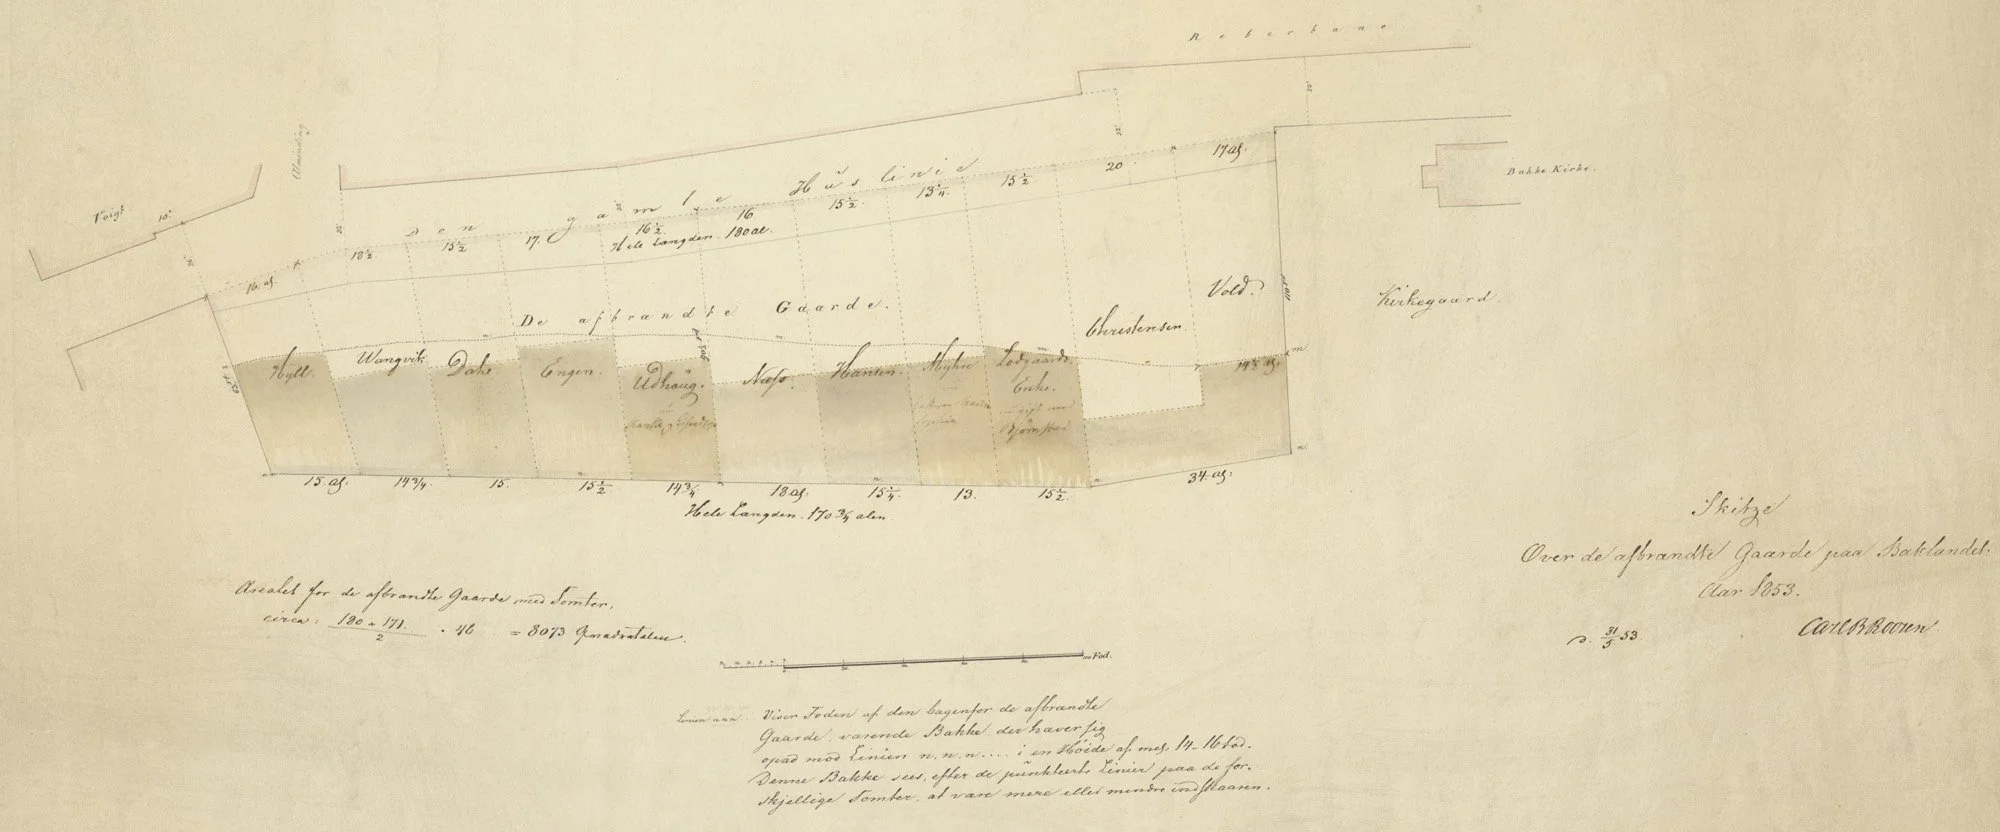 Reberbane.
Almending
Voigt.
10.
Den gamle Huslinie
16 al.
18½
15½
17.
16½
16
15½
13¼
15½
20
17 al.
Hele Længden 180 al.
Bakke Kirke.
Kirkegaard.
De afbrændte Gaarde.
Hyll.
Wangvik
Dahl
Engen.
Udhaug.
Næss.
Hansen.
Myhre
Lodgaards
Enke.
Bjørnstad
Christensen
Vold.
14½ al.
15 al:
14¾.
15.
15½
14¾
18 al:
15¼
13.
15½
34 al:
Hele Længden. 170¾ alen.
Arealet for de afbrændte Gaarde med Tomter,
circa: 180 + 171 / 2 . 46 = 8073 Qvadratalen.
Fod.
Linien m.m.m. Viser Foden af den bagenfor de afbrændte
Gaarde, værende Bakke, der hæver sig
opad mod Linien n.n.n.... i en Høide af mel. 14-16 Fod.
Denne Bakke sees, efter de punkteerte Linier paa de for-
skjellige Tomter, at være mere eller mindre indskaaren.
Skitze
Over de afbrændte Gaarde paa Baklandet.
Aar 1853.
d. 31/5 53
Carl B Roosen